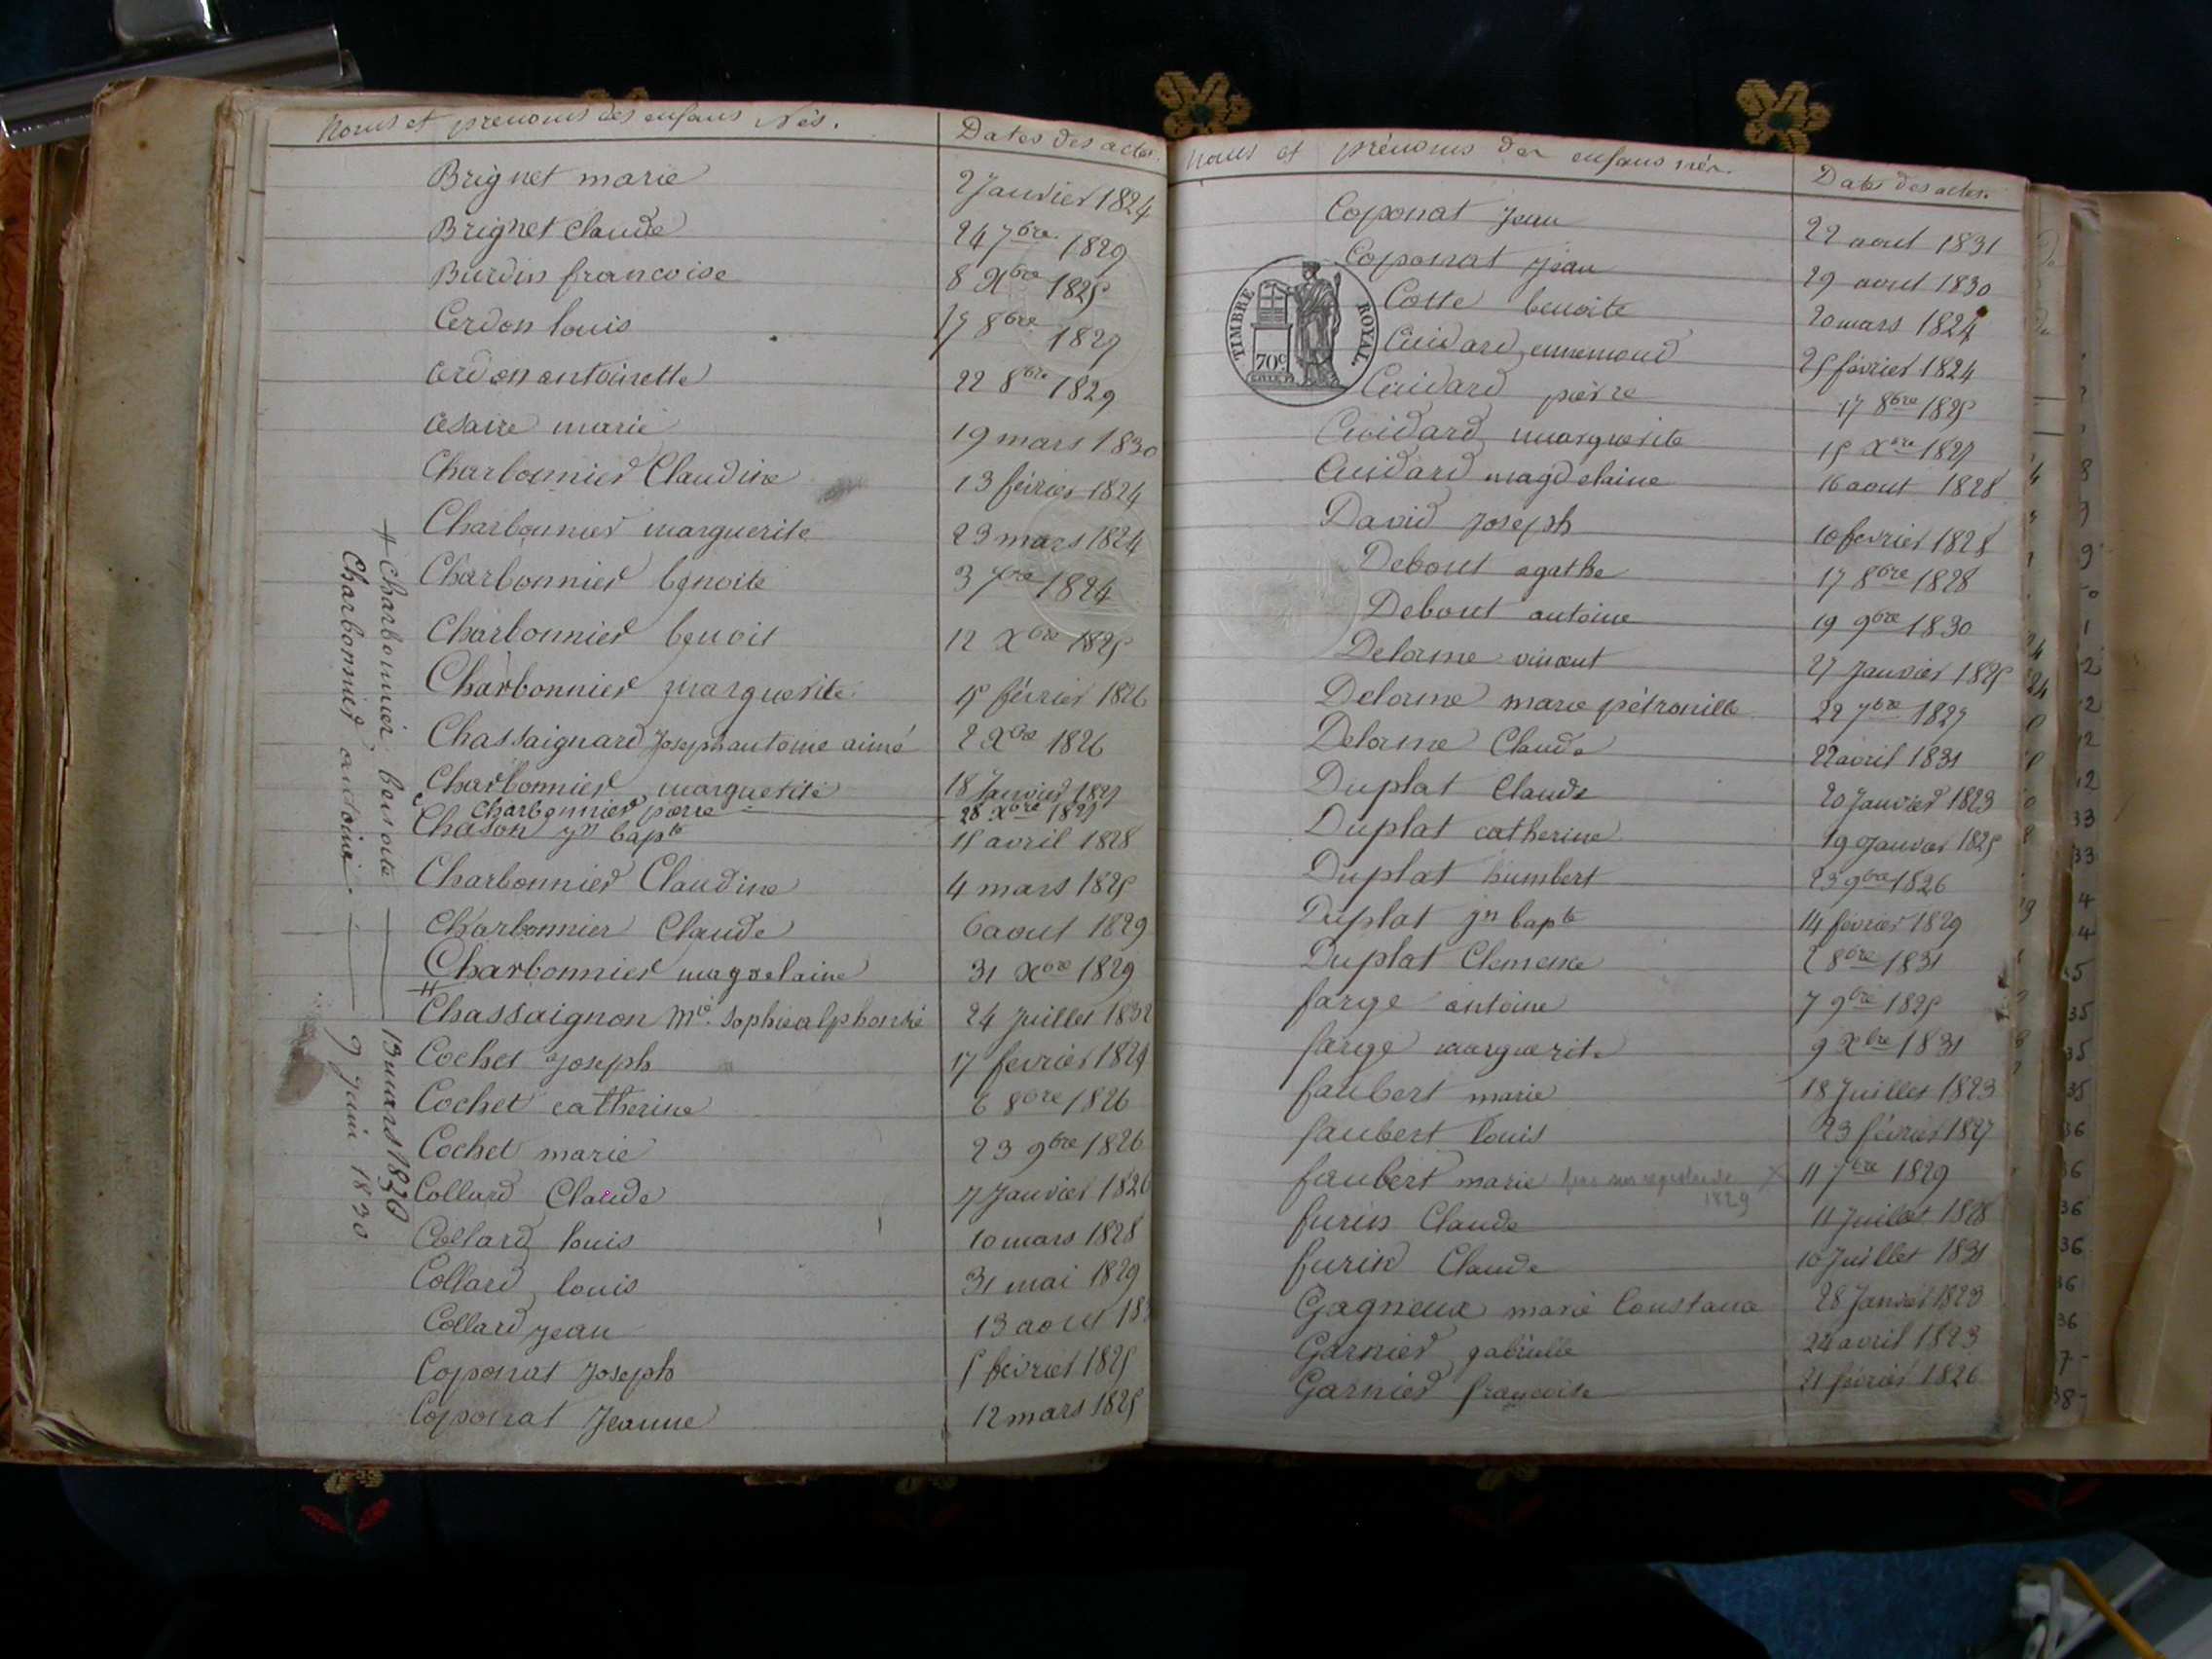 Noms et prenoms des enfans Nés. Dates des actes.
Brignet marie 2 Janvier 1824
Brignet Claude 24 7bre 1829
Burdin francoise 8 Xbre 1825
Cerdon louis 17 8bre 1827
Cerdon antoinette 22 8bre 1829
Cesaire marie 19 mars 1830
Charbonnier Claudine 13 février 1824
Charbonnier marguerite 23 mars 1824
Charbonnier benoite 3 7bre 1824
Charbonnier benoit 12 Xbre 1825
Charbonnier marguerite 15 février 1826
Chassaignard Joseph antoine aimé 2 Xbre 1826
Charbonnier marguerite 18 Janvier 1827
Charbonnier pierre 28 Xbre 1827
Chason jn bapte 15 avril 1828
Charbonnier Claudine 4 mars 1825
Charbonnier Claude 6 aout 1829
Charbonnier magdelaine 31 Xbre 1829
Chassaignon Mie Sophie alphonsie 24 Juillet 1832
Cochet Joseph 17 fevrier 1824
Cochet catherine 6 8bre 1826
Cochet marie 23 9bre 1826
Collard Claude 7 Janvier 1826
Collard louis 10 mars 1828
Collard louis 31 mai 1829
Collard jean 13 aout 183
Coponat Joseph 5 février 1825
Coponat Jeanne 12 mars 1825
# Charbonnier benoite 13 mars 1830
Charbonnier antoine. 9 Juin 1830
Noms et prénoms des enfans nés. Dates des actes.
Coponat Jean 22 aout 1831
Coponat Jean 29 aout 1830
Coste benoite 20 mars 1824
Cuidard ennemond 25 février 1824
Cuidard pierre 17 8bre 1825
Cuidard marguerite 15 Xbre 1827
Cuidard magdelaine 16 aout 1828
David Joseph 10 fevrier 1828
Debout agathe 17 8bre 1828
Debout antoine 19 9bre 1830
Delorme vincent 27 Janvier 1825
Delorme marie pétronille 22 7bre 1827
Delorme Claude 22 avril 1831
Duplat Claude 20 Janvier 1823
Duplat catherine 19 Janvier 1825
Duplat humbert 23 9bre 1826
Duplat jn bapte 14 février 1829
Duplat Clemence 2 8bre 1831
farge antoine 7 9bre 1825
farge marguerite 9 Xbre 1831
faubert marie 18 Juillet 1823
faubert louis 23 février 1827
faubert marie pas sur registre de 1829 X 11 7bre 1829
furin Claude 11 Juillet 1828
furin Claude 10 Juillet 1831
Gagneux marie Constance 28 Janvier 1823
Garnier gabrielle 24 avril 1823
Garnier francoise 21 février 1826
TIMBRE ROYAL
70c